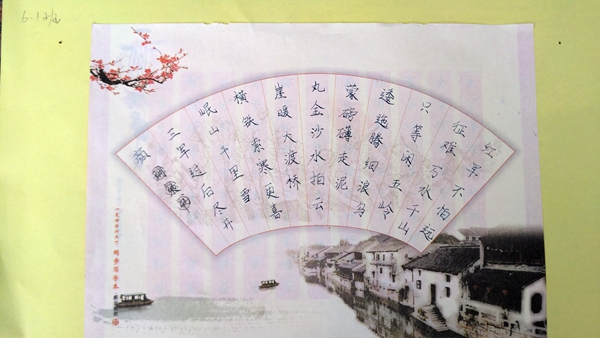 6.1班
红军不怕远
征难万水千山
只等闲五岭
逶迤腾细浪乌
蒙磅礴走泥
丸金沙水拍云
崖暖大渡桥
横铁索寒更喜
岷山千里雪
三军过后尽开
颜
同步写字本